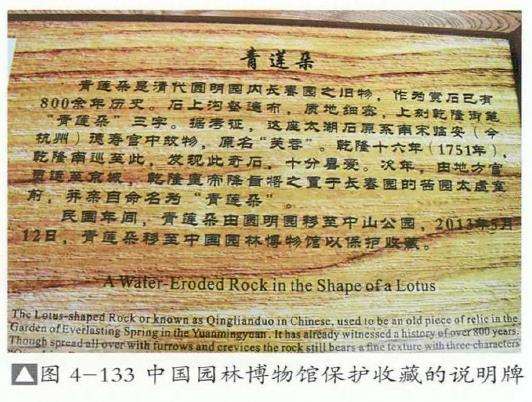 青莲朵
青莲朵是清代圆明园内长春园之旧物，作为赏石已有
800余年历史。石上沟壑遍布，质地细密，上刻乾隆御笔
“青莲朵”三字。据考证，这座太湖石原系南宋临安（今
杭州）德寿宫中故物，原名“芙蓉”。乾隆十六年（1751年），
乾隆南巡至此，发现此奇石，十分喜爱。次年，由地方官
运送至京城，乾隆皇帝降旨将之置于长春园的茜园太虚室
前，并亲自命名为“青莲朵”。
民国年间，青莲朵由圆明园移至中山公园，2013年5月
12日，青莲朵移至中国园林博物馆以保护收藏。
A Water-Eroded Rock in the Shape of a Lotus
The Lotus-shaped Rock or known as Qinglianduo in Chinese, used to be an old piece of relic in the
Garden of Everlasting Spring in the Yuanmingyuan. It has already witnessed a history of over 800 years.
Though spread all over with furrows and crevices the rock still bears a fine texture with three characters
▲图 4-133 中国园林博物馆保护收藏的说明牌